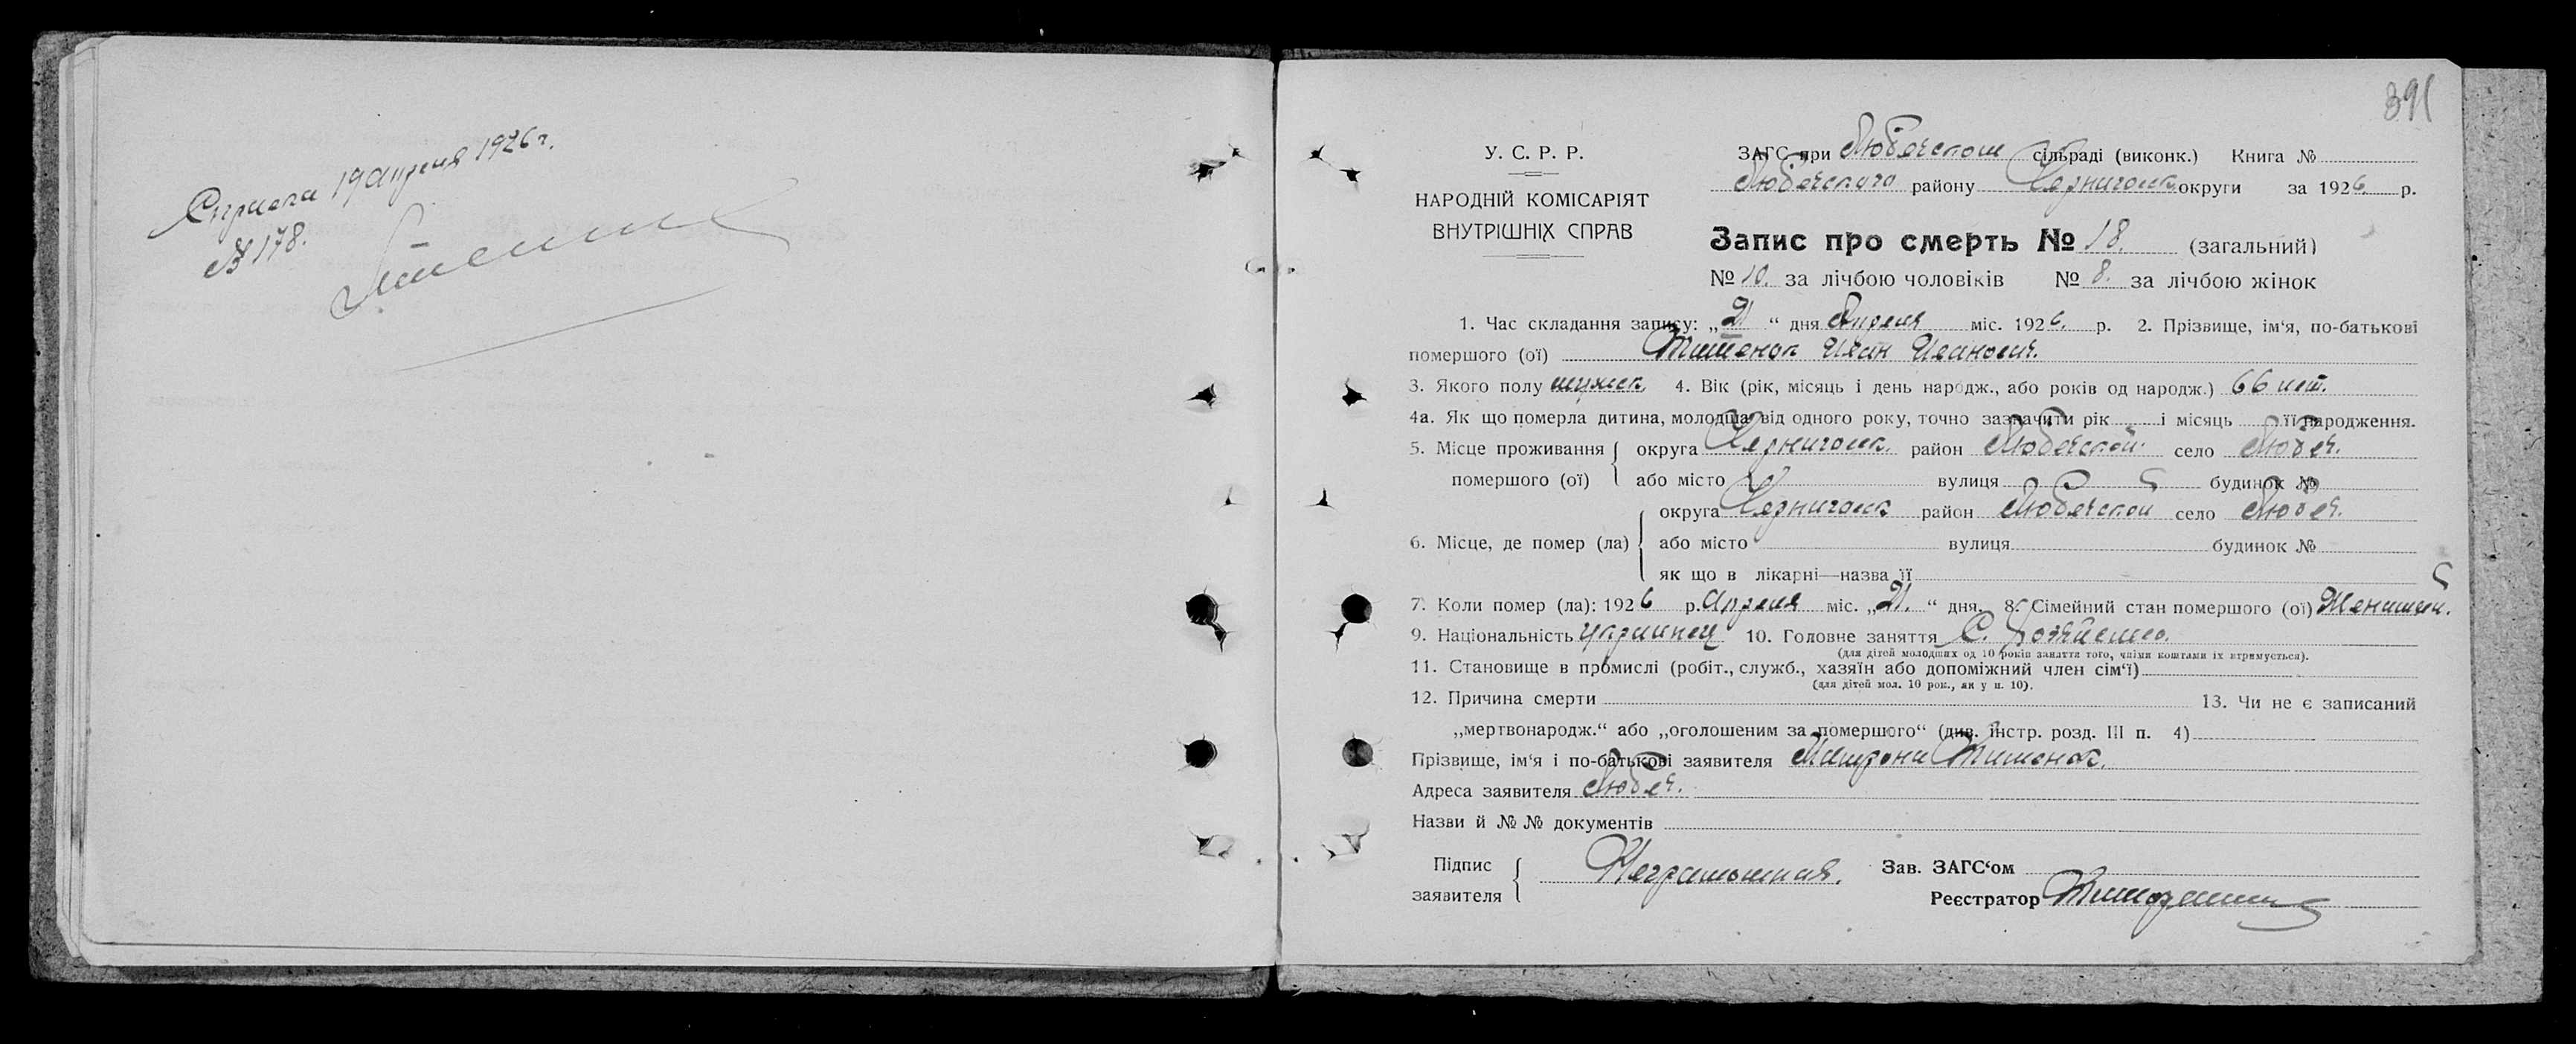 Справка 19 апреля 1926 г.
№ 178.
391
У. С. Р. Р.
НАРОДНІЙ КОМІСАРІЯТ
ВНУТРІШНІХ СПРАВ
ЗАГС при Любечском сільраді (виконк.) Книга №
Любечского району Черниговск. округи за 1926 р.
Запис про смерть № 18. (загальний)
№ 10. за лічбою чоловіків № 8. за лічбою жінок
1. Час складання запису: „21“ дня Апреля міс. 1926. р. 2. Прізвище, ім‘я, по-батькові
помершого (ої) Тименок Иван Иванович.
3. Якого полу мужск. 4. Вік (рік, місяць і день народж., або років од народж.) 66 лет.
4а. Як що померла дитина, молодша від одного року, точно зазначити рік і місяць її народження.
5. Місце проживання помершого (ої) { округа Черниговск. район Любечской село Любеч.
або місто вулиця будинок №
6. Місце, де помер (ла) { округа Черниговск район Любечской село Любеч.
або місто вулиця будинок №
як що в лікарні—назва її
7. Коли помер (ла): 1926 р. Апреля міс. „21.“ дня. 8. Сімейний стан помершого (ої) Женатый.
9. Національність украинец 10. Головне заняття С. хозяйство.
(для дітей молодших од 10 років заняття того, чиїми коштами їх втримується).
11. Становище в промислі (робіт., служб., хазяїн або допоміжний член сім‘ї)
(для дітей мол. 10 рок., як у п. 10).
12. Причина смерти 13. Чи не є записаний
„мертвонародж.“ або „оголошеним за помершого“ (див. інстр. розд. III п. 4)
Прізвище, ім‘я і по-батькові заявителя Матрона Тименок.
Адреса заявителя Любеч.
Назви й № № документів
Підпис заявителя { Неграмотная. Зав. ЗАГС‘ом
Реєстратор